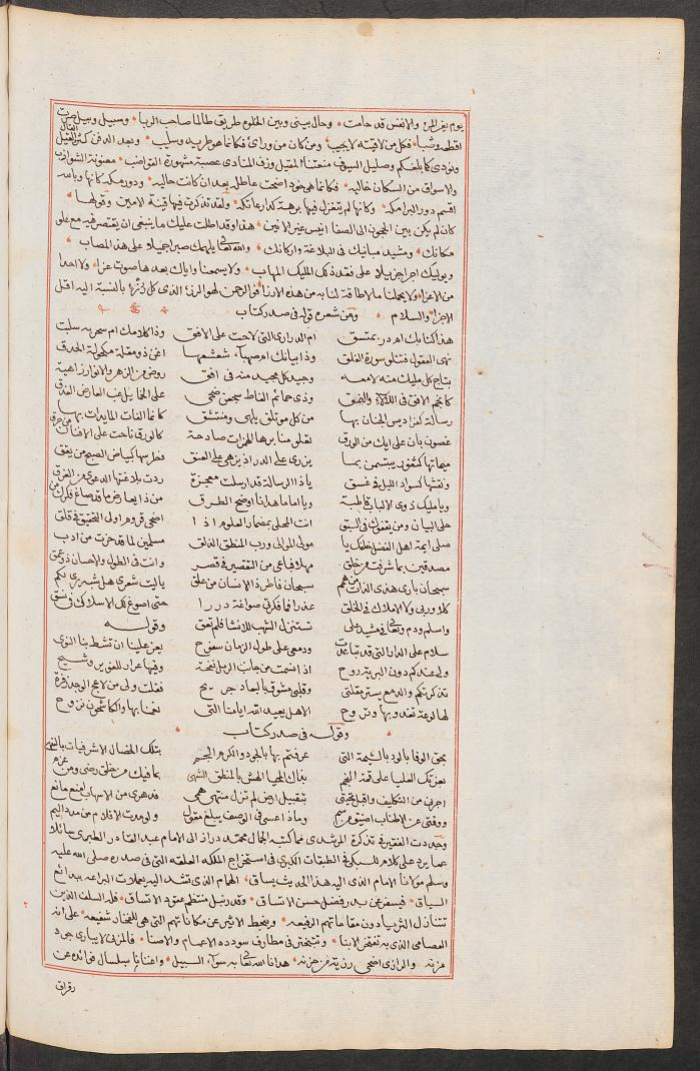 يوم يفر المرء والانفس قد حامت وحال بيني وبين الخلوص طريق طالما صاحب الربا وسبيل وبيل صرت
اقطعه وثبا فكل من لاقيته لا يجيب ومن كان من ورائي فكانما هو طريد وسليب وبعد الدفن كثر القيل
ونودي كما بلغكم وصليل السيوف منعقنا المقيل وزف المنادي عصبة مشهورة القواضب مصونة الشوازب
والاسواق من السكان خاليه فكانما هو خود اضحت عاطله بعد ان كانت حاليه ودور مكه كانها وبالله
اقسم دور البرامكه وكانها لم يتغزل فيها برهة كدار عاتكه ولقد تذكرت فيها قينة الامين وقولها
كان لم يكن بين الحجون الى الصفا انيس غير الانين هذا وقد اطلت عليك ما ينبغي ان يقتصر فيه مع علو
مكانك ومشيد مبانيك في البلاغة واركانك والله تعالى يلهمك صبرا جميلا على هذا المصاب
ويوليك اجرا جزيلا على فقد ذلك المليك المهاب ولا يسمعنا واياك بعدها صوت عزاء ولا احدا
من الاعزاء ولا يحملنا ما لا طاقة لنا به من هذه الارزاء فوالرحمن لهو الرزء الذي كل رزء بالنسبة اليه اقل
الاجزاء والسلام ومن شعره قوله في صدر كتاب
هذا كتابك ام در بمتسق ام الدراري التي لاحت على الافق وذا كلامك ام سحر به سلبت
نهى العقول فنتلو سورة الفلق وذا بيانك ام صهباء شعشعها اغن ذو مقلة مكحولة الحدق
بتاج كل مليك منه لامعة وجيد كل مجيد منه في افق روض من الزهر والانوار زاهية
كانجم الافق في اللألاء والنسق وذي حمائم الفاظ سجعن ضحى على الخمايل غب العارض الغدق
رسالة كفراديس الجنان بها من كل موتلق يلهي ومنتشق كانما الفات المايدات بها
غصون بان على ايك من الورق تعلو منابرها الهمزات صادحة كالورق ناحت على الافنان من حرق
ميماتها كثغور يبتسمن بما يزري على الدر اذ يزهى على العنق فطرسها كبياض الصبح من يقق
ونقسها كسواد الليل في غسق يا ذا الرسالة قد ارسلت معجزة ردت بلاغتها الدعوى من الفرق
ويا مليك ذوي الالباب قاطبة ويا اماما هدانا اوضح الطرق من ذا يعارض ما قد صاغ فكرك من
حلي البيان ومن يقفوك في السبق انت المجلي بمضمار العلوم اذا اضحى قروم اولي التحقيق في قلق
صلى ايمة اهل الفضل خلفك يا مولى الموالي ورب المنطق الذلق مسلمين لما قد حزت من ادب
مصدقين بما شرفت من خلق مهلا فباعي من التقصير في قصر وانت في الطول والاحسان ذو عمق
سبحان باري هذي الذات من همم سبحان فاطر ذا الانسان من علق يا ليت شعري هل شبهي لكم
كلا وربي ولا الاملاك في الخلق عذرا فما فكرتي صواغة دررا حتى اصوغ لك الاسلاك في نسق
واسلم ودم وتعالى في مشيد على تستنزل الشهب للانشا فلم تعق وقوله
سلام على الدار التي قد تباعدت ودمعي على طول الزمان سفوح يعز علينا ان تشط بنا النوى
ولي عندكم دون البرية روح اذا نسمت من جانب الرمل نفحة وفيها عرار للغوير وشيح
تذكرتكم والدمع يستر مقلتي وقلبي مشوق بالبعاد جريح فقلت ولي من لاعج الوجد زفرة
لها لوعة تغدو بها وتروح الا هل يعيد الله ايامنا التي نعمنا بها والكاشحون نزوح
وقوله في صدر كتاب
بحق الوفا بالود بالشيمة التي عرفتم بها بالجود والكرم الجم بتلك الخصال الاشرفيات بالنهى
بعزتك العليا على قمة النجم بذاك المحيا الهش بالمنطق الشهي بما فيك من خلق رضى ومن عزم
اجرني من التكليف واقبل تحيتي بتقبيل ارض لم تزل منتهى همي فدهري من الاسهاب امنع مانع
ووقتي عن الاطناب اضيق من سم وماذا عسى في الوصف يبلغ مقول ولو مدت الاقلام من مدد اليم
وجددت الفقير في تذكرة المرشدي مما كتبه الجمال محمد دراز الى الامام عبد القادر الطبري سائلا
عما يرد على كلام للسبكي في الطبقات الكبرى في استخراج الملكه العلقه التي في صدره صلى الله عليه
وسلم مولانا الامام الذي اليه هذا الحديث يساق الهمام الذي تشد اليه يعملات البراعه ببدائع
السياق فيسفر عن بدر فضل حسن الاتساق وقدر نبل منتظم عقود الاتساق فله السلف الذين
تتنازل الثريا دون مقاماتهم الرفيعه وينحط الاثير عن مكاناتهم التي هي للفخار شفيعه على انه
العصامي الذي به تفتخر الابنا وتتبختر في مطارف سودده الاعمام والاصنا فالمزني لا يباري جود
عزنه والرازي اضحى رزية من حزنه هدانا الله تعالى به سواء السبيل واغنانا بسلسال فوائده عن
رقراق